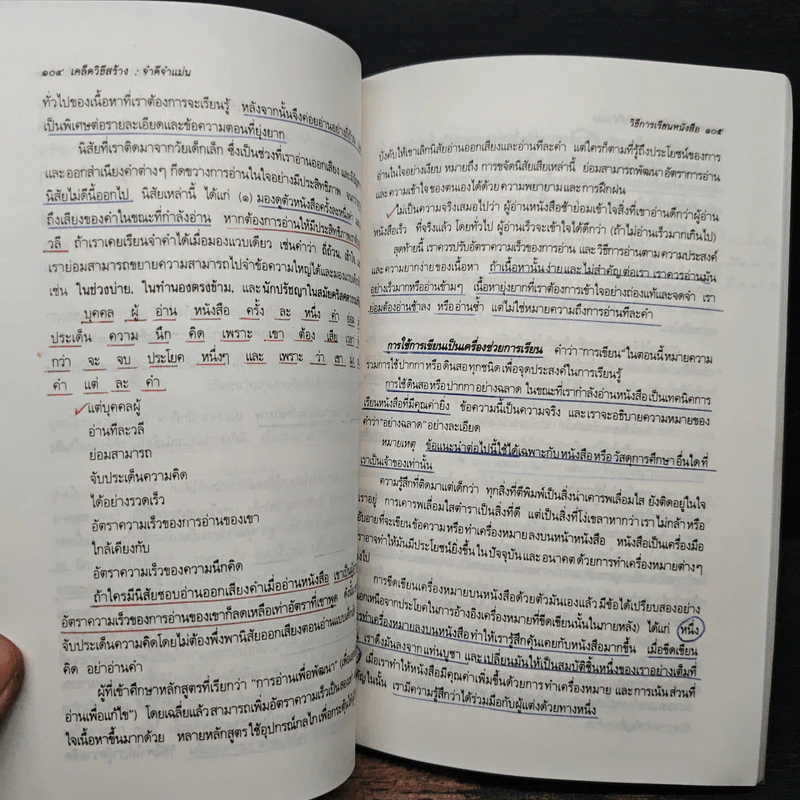 ๑๐๔ เคล็ดวิธีสร้าง : จำดีจำแม่น
ทั่วไปของเนื้อหาที่เราต้องการจะเรียนรู้ หลังจากนั้นจึงค่อยอ่านอย่างถี่ถ้วน
เป็นพิเศษต่อรายละเอียดและข้อความตอนที่ยุ่งยาก
นิสัยที่เราติดมาจากวัยเด็กเล็ก ซึ่งเป็นช่วงที่เราอ่านออกเสียง
และออกสำเนียงคำต่างๆ กีดขวางการอ่านในใจอย่างมีประสิทธิภาพ
นิสัยไม่ดีนี้ออกไป นิสัยเหล่านี้ ได้แก่ (๑) มองดูตัวหนังสือครั้งละหนึ่งคำ
ถึงเสียงของคำในขณะที่กำลังอ่าน หากต้องการอ่านให้มีประสิทธิภาพ
วลี ถ้าเราเคยเรียนจำคำได้เมื่อมองแวบเดียว เช่นคำว่า ถี่ถ้วน, เข้าใจ
เราย่อมสามารถขยายความสามารถไปจำข้อความใหญ่ได้และมองแวบเดียว
เช่น ในช่วงบ่าย, ในทำนองตรงข้าม, และนักปรัชญาในสมัยคริสตศตวรรษ
บุคคล ผู้ อ่าน หนังสือ ครั้ง ละ หนึ่ง คำ ย่อม
ประเด็น ความ นึก คิด เพราะ เขา ต้อง เสีย เวลา
กว่า จะ จบ ประโยค หนึ่งๆ และ เพราะ ว่า เขา
คำ แต่ ละ คำ
แต่บุคคลผู้
อ่านทีละวลี
ย่อมสามารถ
จับประเด็นความคิด
ได้อย่างรวดเร็ว
อัตราความเร็วของการอ่านของเขา
ใกล้เคียงกับ
อัตราความเร็วของความนึกคิด
ถ้าใครมีนิสัยชอบอ่านออกเสียงคำเมื่ออ่านหนังสือ เขาเป็น
อัตราความเร็วของการอ่านของเขาก็ลดเหลือเท่าอัตราที่เขาพูด
จับประเด็นความคิดโดยไม่ต้องพึ่งพานิสัยออกเสียงตอนอ่านแบบเด็ก
คิด อย่าอ่านคำ
ผู้ที่เข้าศึกษาหลักสูตรที่เรียกว่า “การอ่านเพื่อพัฒนา”
อ่านเพื่อแก้ไข”) โดยเฉลี่ยแล้วสามารถเพิ่มอัตราความเร็วเป็นสอง
ใจเนื้อหาขึ้นมากด้วย หลายหลักสูตรใช้อุปกรณ์กลไกเพื่อกระตุ้น
วิธีการเรียนหนังสือ ๑๐๕
บังคับให้เขาเลิกนิสัยอ่านออกเสียงและอ่านทีละคำ แต่ใครก็ตามที่รู้ถึงประโยชน์ของการ
อ่านในใจอย่างเงียบ หมายถึง การขจัดนิสัยเสียเหล่านี้ ย่อมสามารถพัฒนาอัตราการอ่าน
และความเข้าใจของตนเองได้ด้วย ความพยายามและการฝึกฝน
ไม่เป็นความจริงเสมอไปว่า ผู้อ่านหนังสือช้าย่อมเข้าใจสิ่งที่เขาอ่านดีกว่าผู้อ่าน
หนังสือเร็ว ที่จริงแล้ว โดยทั่วไป ผู้อ่านเร็วจะเข้าใจได้ดีกว่า (ถ้าไม่อ่านเร็วมากเกินไป)
สุดท้ายนี้ เราควรปรับอัตราความเร็วของการอ่าน และวิธีการอ่านตามความประสงค์
และความยากง่ายของเนื้อหา ถ้าเนื้อหานั้นง่ายและไม่สำคัญต่อเรา เราควรอ่านมัน
อย่างเร็วมากหรืออ่านข้ามๆ เนื้อหายุ่งยากที่เราต้องการเข้าใจอย่างถ่องแท้และจดจำ เรา
ย่อมต้องอ่านช้าลง หรืออ่านซ้ำ แต่ไม่ใช่หมายความถึงการอ่านทีละคำ
การใช้การเขียนเป็นเครื่องช่วยการเรียน คำว่า “การเขียน” ในตอนนี้หมายความ
รวมการใช้ปากกาหรือดินสอทุกชนิด เพื่อจุดประสงค์ในการเรียนรู้
การใช้ดินสอหรือปากกาอย่างฉลาด ในขณะที่เรากำลังอ่านหนังสือเป็นเทคนิคการ
เรียนหนังสือที่มีคุณค่ายิ่ง ข้อความนี้เป็นความจริง และเราจะอธิบายความหมายของ
คำว่า “อย่างฉลาด” อย่างละเอียด
หมายเหตุ ข้อแนะนำต่อไปนี้ใช้ได้เฉพาะกับหนังสือหรือวัสดุการศึกษาอื่นใดที่
เราเป็นเจ้าของเท่านั้น
ความรู้สึกที่ติดมาแต่เด็กว่า ทุกสิ่งที่ตีพิมพ์เป็นสิ่งน่าเคารพเลื่อมใส ยังติดอยู่ในใจ
เราอยู่ การเคารพเลื่อมใสตำราเป็นสิ่งที่ดี แต่เป็นสิ่งที่โง่เขลาหากว่าเราไม่กล้าหรือ
อับอายที่จะเขียนข้อความหรือทำเครื่องหมายลงบนหน้าหนังสือ หนังสือเป็นเครื่องมือ
เราอาจทำให้มันมีประโยชน์ยิ่งขึ้นในปัจจุบันและอนาคตด้วยการทำเครื่องหมายต่างๆ
ลงไป
การขีดเขียนเครื่องหมายบนหนังสือด้วยตัวมันเองแล้วมีข้อได้เปรียบสองอย่าง
นอกเหนือจากประโยชน์ในการอ้างอิงเครื่องหมายที่ขีดเขียนนั้นในภายหลัง) ได้แก่ หนึ่ง
การทำเครื่องหมายลงบนหนังสือทำให้เรารู้สึกคุ้นเคยกับหนังสือมากขึ้น เมื่อขีดเขียน
เราดึงมันลงจากแท่นบูชา และเปลี่ยนมันให้เป็นสมบัติชิ้นหนึ่งของเราอย่างเต็มที่
เมื่อเราทำให้หนังสือมีคุณค่าเพิ่มขึ้นด้วยการทำเครื่องหมาย และการเน้นส่วนที่
สำคัญในนั้น เรามีความรู้สึกว่าได้ร่วมมือกับผู้แต่งด้วยทางหนึ่ง